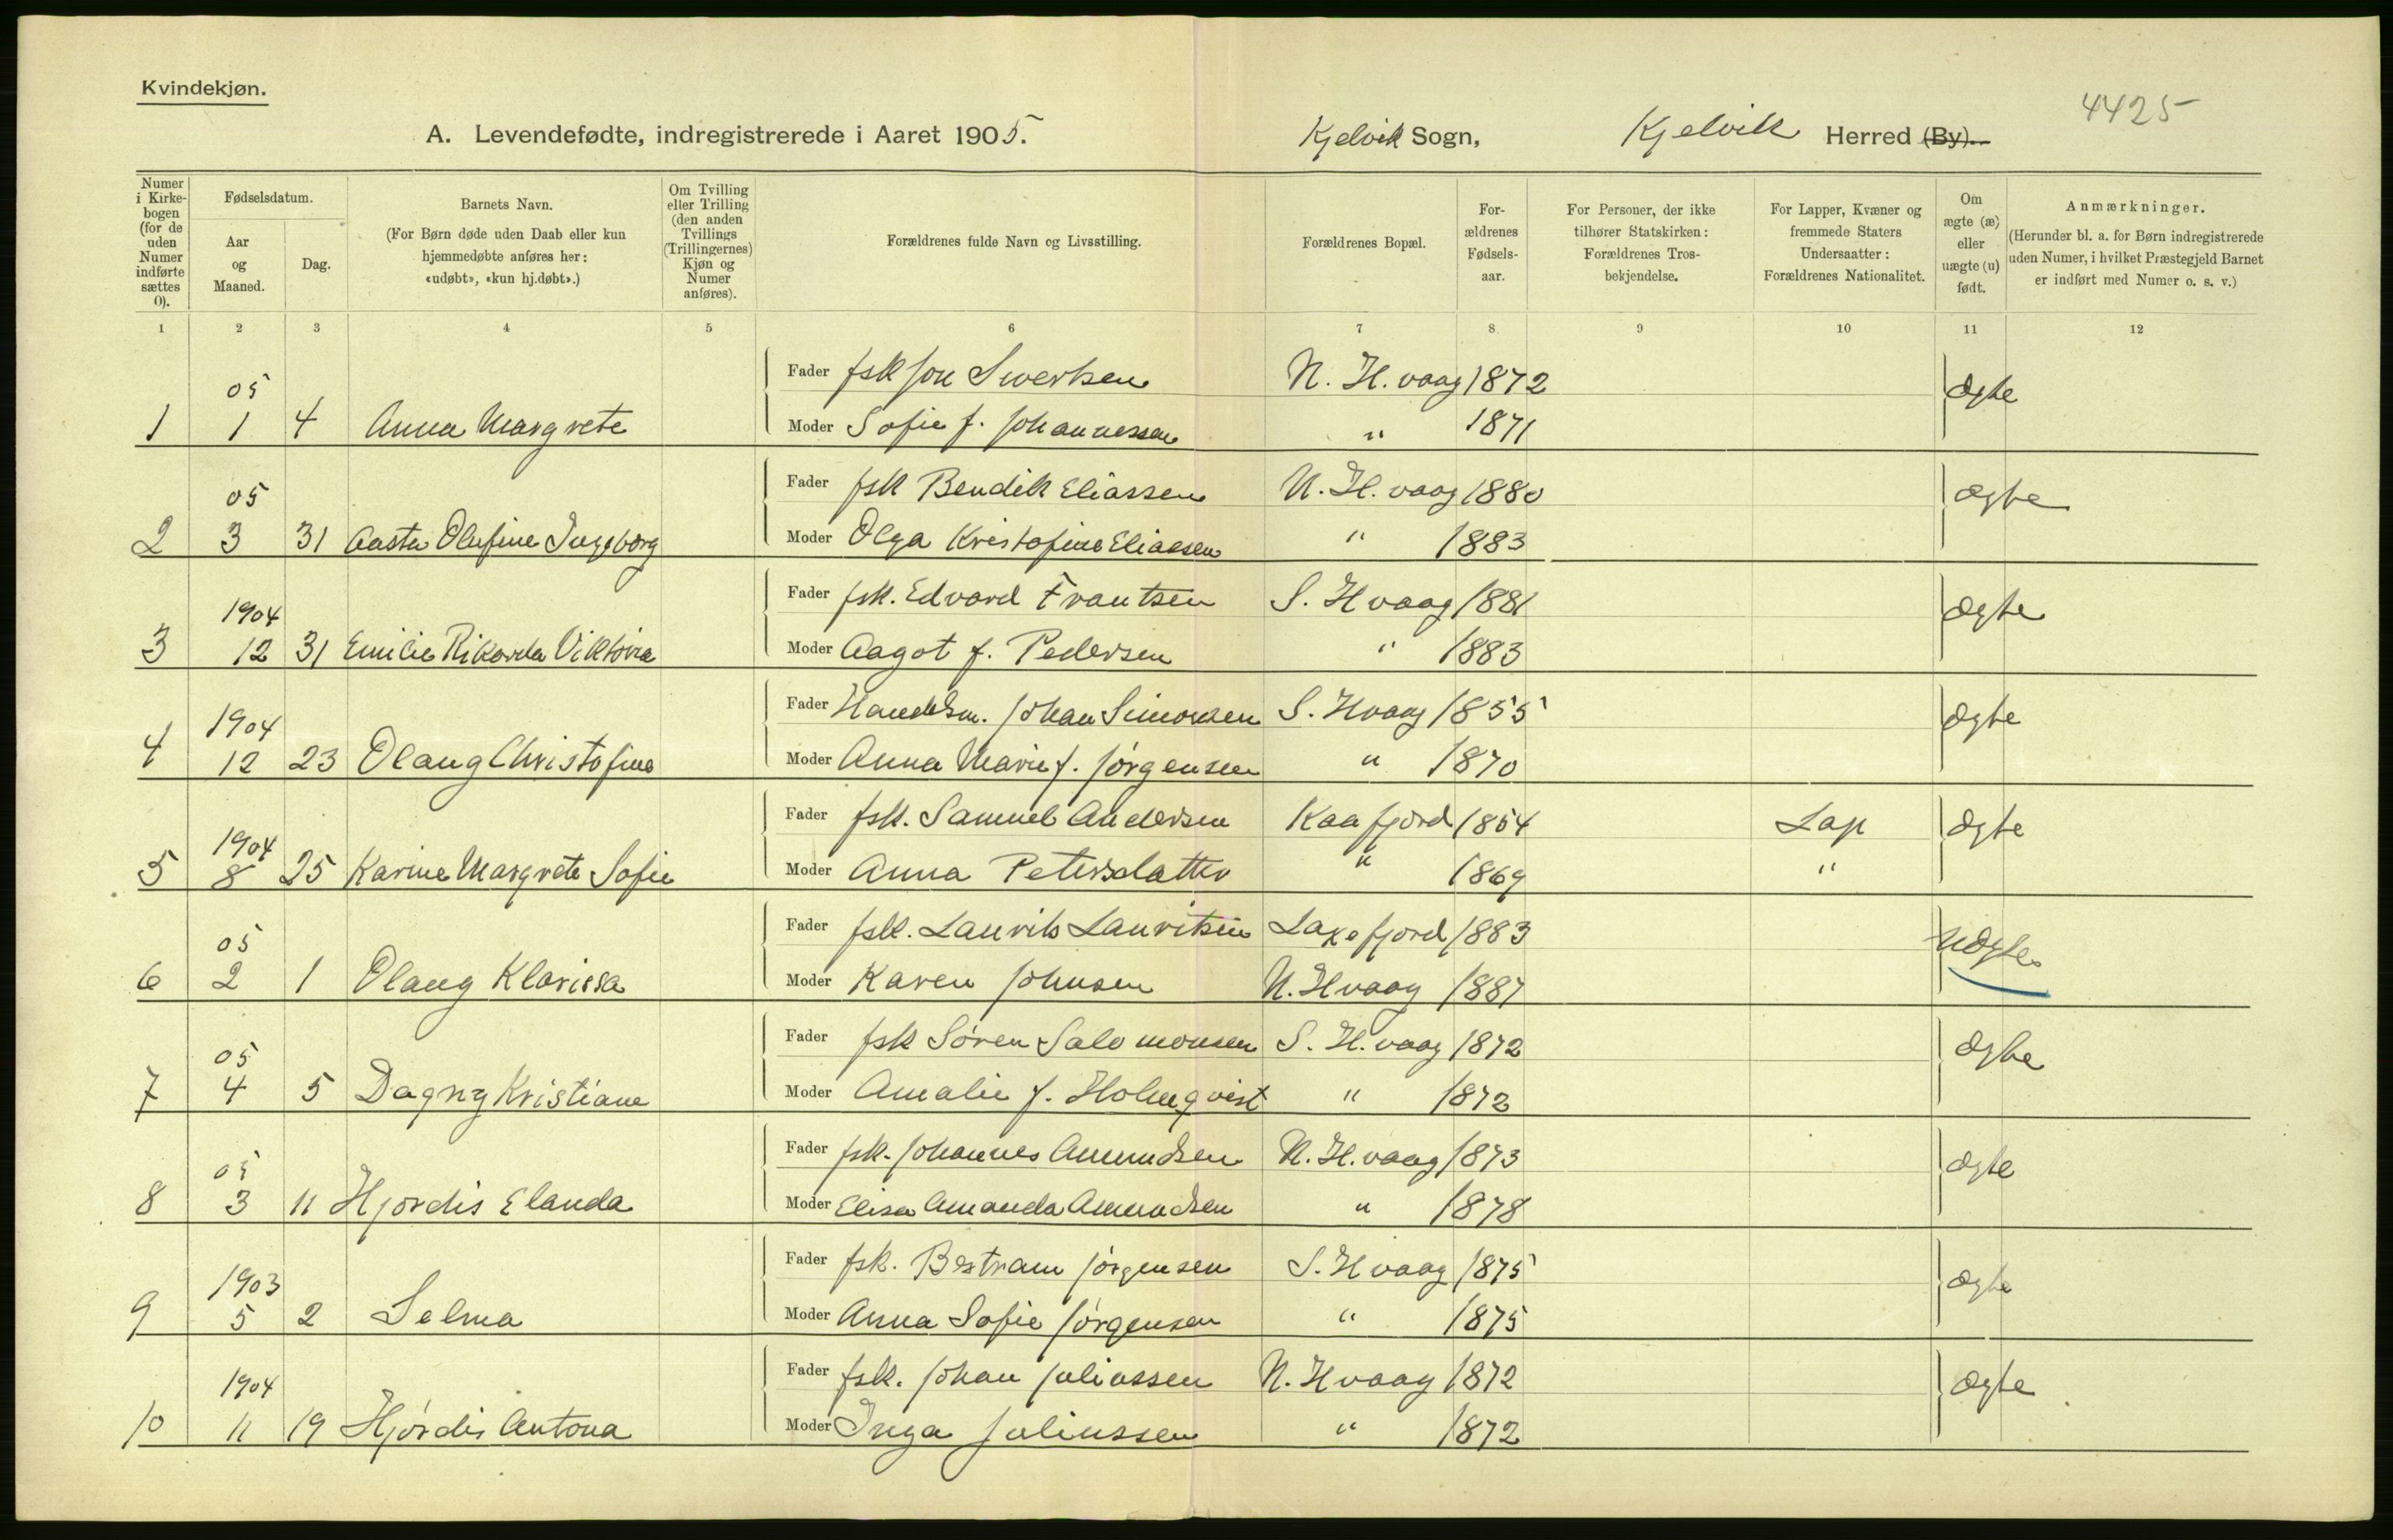 Kvindekjøn.
4425
A. Levendefødte, indregistrerede i Aaret 1905. Kjelvik Sogn, Kjelvik Herred (By).
Numer i Kirke-bogen (for de uden Numer indførte sættes 0).
Fødselsdatum.
Aar og Maaned.
Dag.
Barnets Navn.
(For Børn døde uden Daab eller kun hjemmedøbte anføres her: «udøbt», «kun hj.døbt».)
Om Tvilling eller Trilling (den anden Tvillings (Trillingernes) Kjøn og Numer anføres).
Forældrenes fulde Navn og Livsstilling.
Forældrenes Bopæl.
For-ældrenes Fødsels-aar.
For Personer, der ikke tilhører Statskirken: Forældrenes Tros-bekjendelse.
For Lapper, Kvæner og fremmede Staters Undersaatter: Forældrenes Nationalitet.
Om ægte (æ) eller uægte (u) født.
Anmærkninger.
(Herunder bl. a. for Børn indregistrerede uden Numer, i hvilket Præstegjeld Barnet er indført med Numer o. s. v.)
1 2 3 4 5 6 7 8 9 10 11 12
05 Fader fsk Jon Sivertsen N. H. vaag 1872 ægte
1 1 4 Anna Margrete Moder Sofie f. Johannessen " 1871
05 Fader fsk Bendik Eliassen N. H. vaag 1880 ægte
2 3 31 Aasta Olufine Ingeborg Moder Olga Kristofine Eliassen " 1883
1904 Fader fsk. Edvard Frantsen S. H vaag 1881 ægte
3 12 31 Emilie Rikarda Viktoria Moder Aagot f. Pedersen " 1883
1904 Fader Handelsm. Johan Simonsen S. Hvaag 1855 ægte
4 12 23 Olaug Christofine Moder Anna Marie f. Jørgensen " 1870
1904 Fader fsk. Samuel Andersen Kaafjord 1854 Lap ægte
5 8 25 Karine Margrete Sofie Moder Anna Petersdatter " 1869 "
05 Fader fsk. Laurits Lauritsen Laxefjord 1883 uægte
6 2 1 Olaug Klarissa Moder Karen Johnsen N. Hvaag 1887
05 Fader fsk Søren Salomonsen S. H. vaag 1872 ægte
7 4 5 Dagny Kristiane Moder Amalie f. Holmqvist " 1872
05 Fader fsk. Johannes Amundsen N. H. vaag 1873 ægte
8 3 11 Hjordis Elanda Moder Elisa Amanda Amundsen " 1878
1903 Fader fsk. Bertram Jørgensen S. H vaag 1875 ægte
9 5 2 Selma Moder Anna Sofie Jørgensen " 1875
1904 Fader fsk. Johan Juliussen N. Hvaag 1872 ægte
10 11 19 Hjørdis Antona Moder Inga Juliussen " 1872